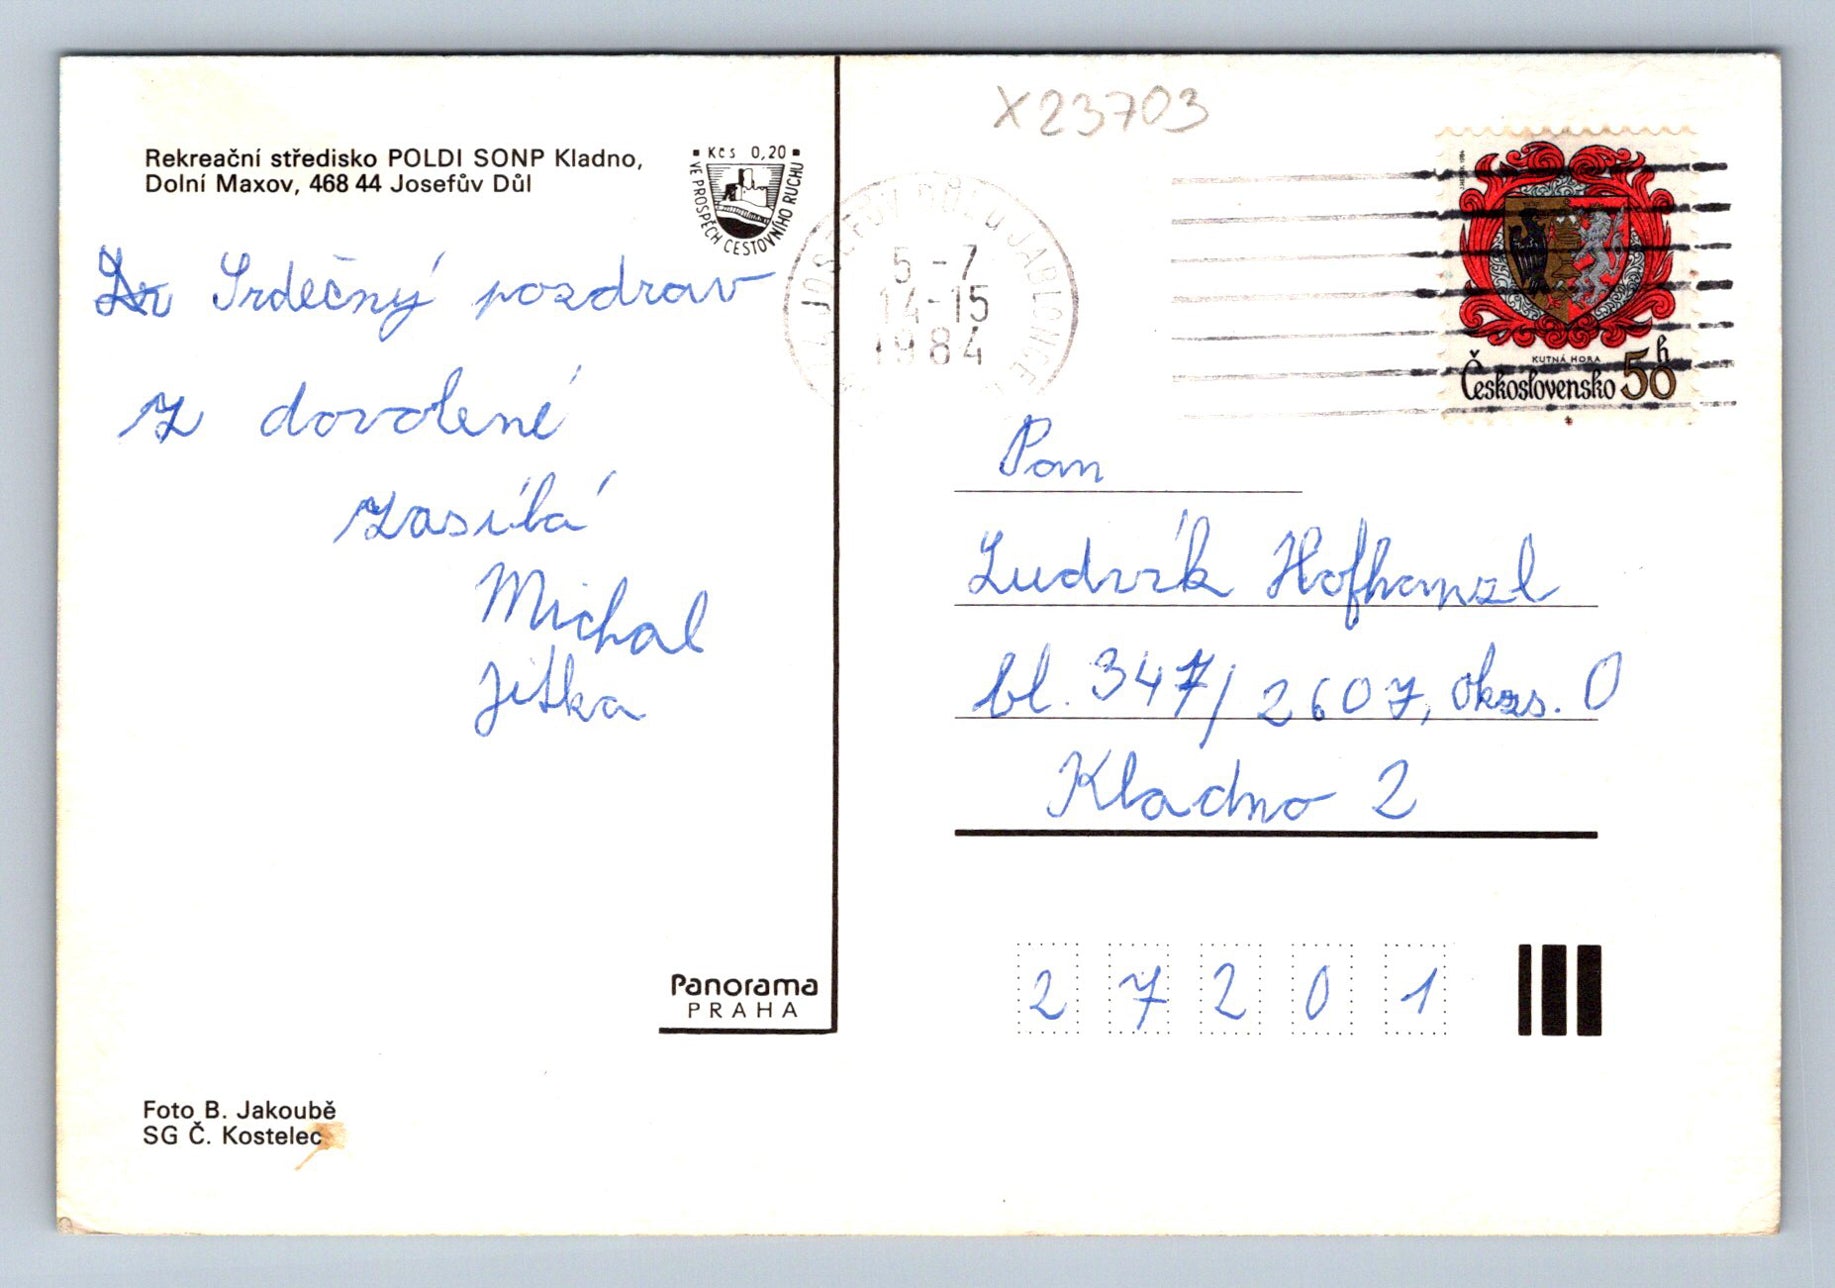 X23703
Rekreační středisko POLDI SONP Kladno,
Dolní Maxov, 468 44 Josefův Důl
Kčs 0,20
VE PROSPĚCH CESTOVNÍHO RUCHU
Srdečný pozdrav
z dovolené
zasílá
Michal
Jitka
JOSEFŮV DŮL U JABLONCE
5-7
14-15
1984
KUTNÁ HORA
Československo 50h
Pan
Ludvík Hofhanzl
bl. 347/2607, okrs. 0
Kladno 2
27201
Panorama
PRAHA
Foto B. Jakoubě
SG Č. Kostelec